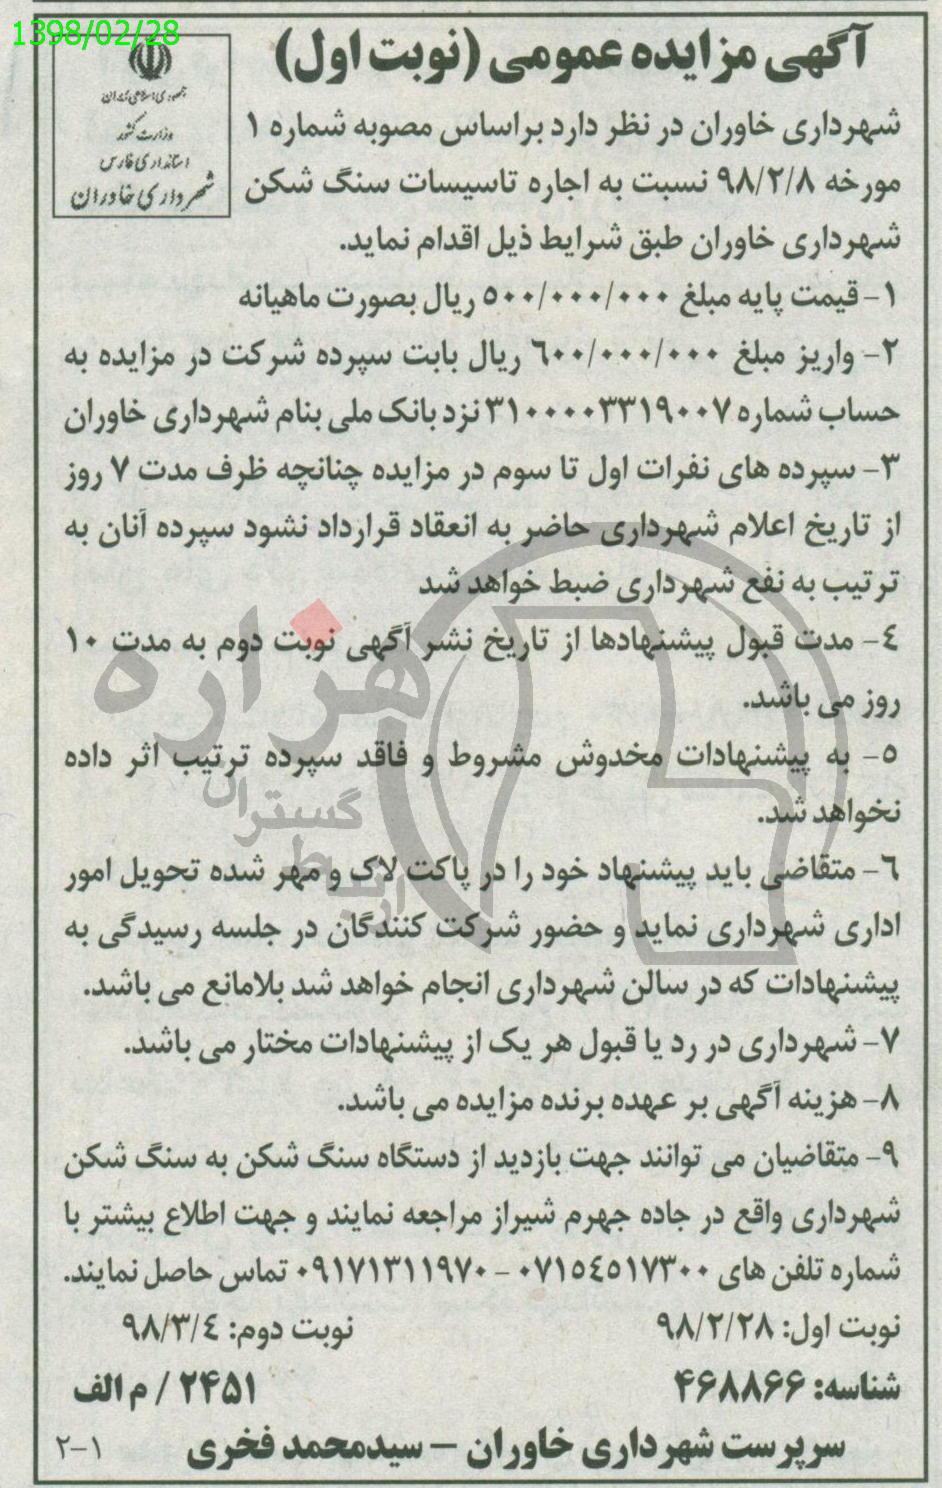 1398/02/28
جمهوری اسلامی ایران
وزارت کشور
استانداری فارس
شهرداری خاوران
آگهی مزایده عمومی (نوبت اول)
شهرداری خاوران در نظر دارد براساس مصوبه شماره ۱
مورخه ۹۸/۲/۸ نسبت به اجاره تاسیسات سنگ شکن
شهرداری خاوران طبق شرایط ذیل اقدام نماید.
۱- قیمت پایه مبلغ ۵۰۰/۰۰۰/۰۰۰ ریال بصورت ماهیانه
۲- واریز مبلغ ۶۰۰/۰۰۰/۰۰۰ ریال بابت سپرده شرکت در مزایده به
حساب شماره ۳۱۰۰۰۰۳۳۱۹۰۰۷ نزد بانک ملی بنام شهرداری خاوران
۳- سپرده های نفرات اول تا سوم در مزایده چنانچه ظرف مدت ۷ روز
از تاریخ اعلام شهرداری حاضر به انعقاد قرارداد نشود سپرده آنان به
ترتیب به نفع شهرداری ضبط خواهد شد
۴- مدت قبول پیشنهادها از تاریخ نشر آگهی نوبت دوم به مدت ۱۰
روز می باشد.
۵- به پیشنهادات مخدوش مشروط و فاقد سپرده ترتیب اثر داده
نخواهد شد.
۶- متقاضی باید پیشنهاد خود را در پاکت لاک و مهر شده تحویل امور
اداری شهرداری نماید و حضور شرکت کنندگان در جلسه رسیدگی به
پیشنهادات که در سالن شهرداری انجام خواهد شد بلامانع می باشد.
۷- شهرداری در رد یا قبول هر یک از پیشنهادات مختار می باشد.
۸- هزینه آگهی بر عهده برنده مزایده می باشد.
۹- متقاضیان می توانند جهت بازدید از دستگاه سنگ شکن به سنگ شکن
شهرداری واقع در جاده جهرم شیراز مراجعه نمایند و جهت اطلاع بیشتر با
شماره تلفن های ۰۷۱۵۴۵۱۷۳۰۰ - ۰۹۱۷۱۳۱۱۹۷۰ تماس حاصل نمایند.
نوبت اول: ۹۸/۲/۲۸ نوبت دوم: ۹۸/۳/۴
شناسه: ۴۶۸۸۶۶ ۲۴۵۱ / م الف
سرپرست شهرداری خاوران - سیدمحمد فخری
۲-۱
هزاره
گستران